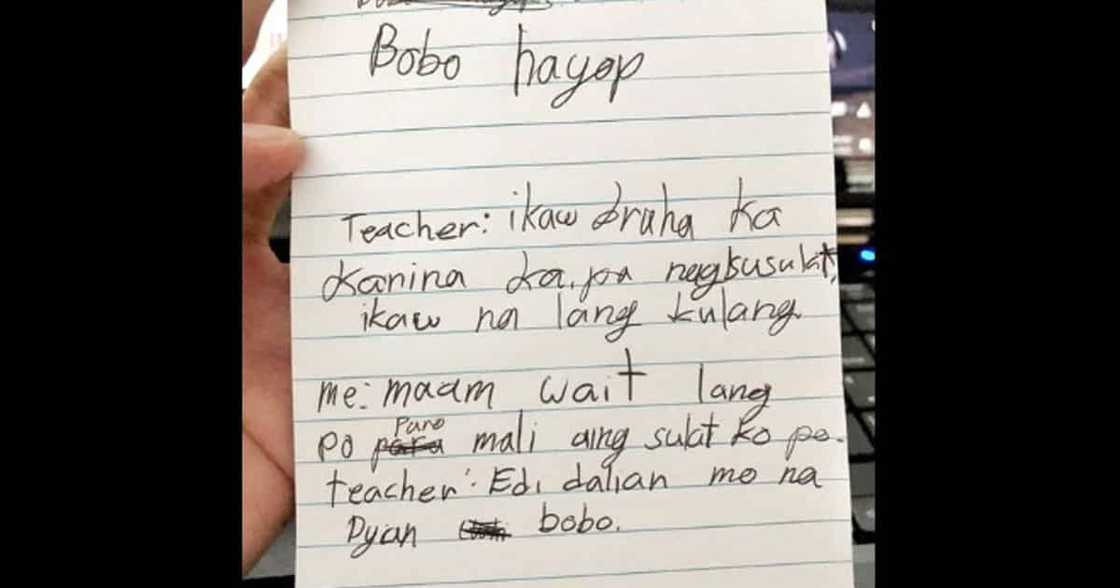 Bobo hayop
Teacher: ikaw bruha ka
kanina ka.pa nagsusulat,
ikaw na lang kulang.
me: maam wait lang
Pano
po para mali aing sulat ko po.
teacher: Edi dalian mo na
Dyan bobo.